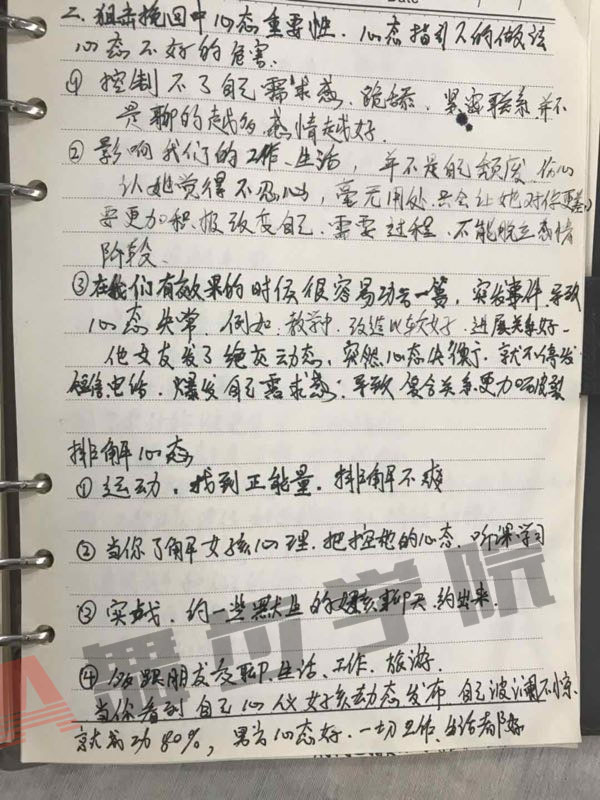 Date
二、狙击挽回中心态重要性. 心态指引人的做法
心态不好的危害.
① 控制不了自己需求感. 跪舔. 紧密联系 并不
是聊的越多, 感情越好.
② 影响我们的工作、生活, 并不是的 频度 伤心
认她觉得不忍心, 毫无用处. 只会让她对你更差
要更加积极改变自己. 需要过程. 不能脱立感情
阶段.
③ 在我们有效果的时候很容易功亏一篑, 突发事件 导致
心态失常. 例如. 教学中. 改造比较好. 进展关系好一
他女友发了绝交动态. 突然心态失衡了. 就不停发
短信电话. 爆发自己需求感: 导致复合关系更加破裂
排解心态
① 运动. 找到正能量. 排解不爽
② 当你了解女孩心理. 把控她的心态. 听课学习
③ 实战. 约一些默生的女孩聊天. 约出来.
④ 多跟朋友交聊. 生活、工作、旅游.
当你看到自己心仪女孩动态发布 自己波澜不惊.
就成功80%, 男方心态好. 一切工作、生活都好
舞步学院